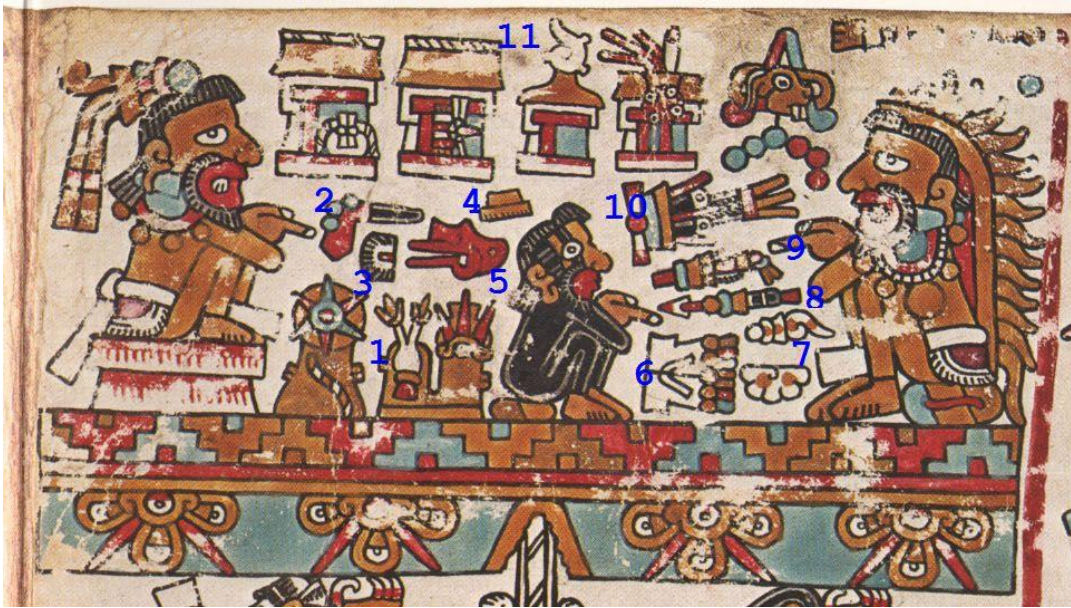 11
2
4
10
9
3
5
8
1
7
6